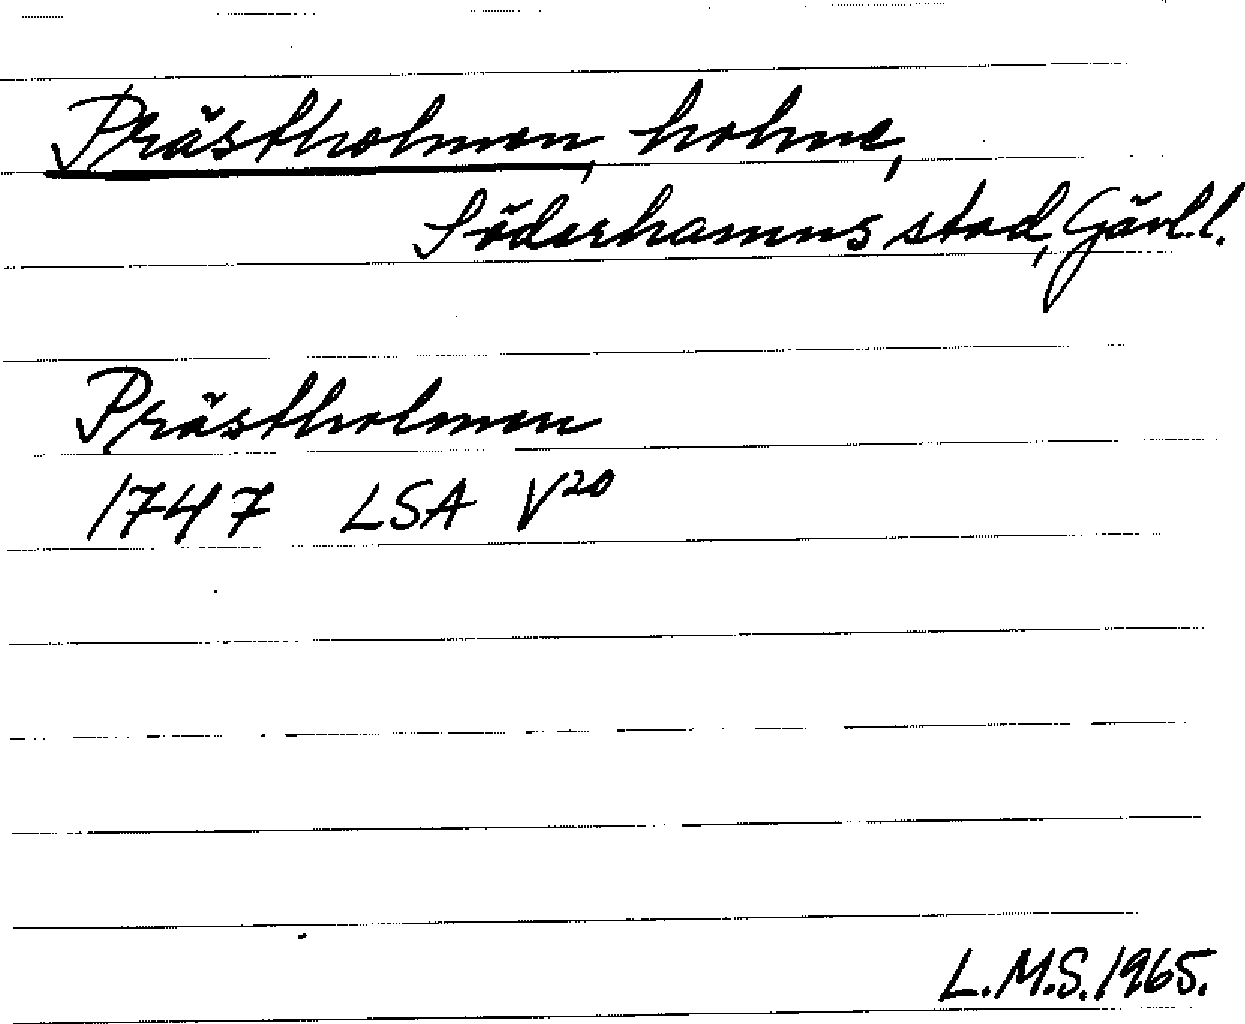 Prästholmen, holme,
Söderhamns stad, Gävl.l.
Prästholmen
1747 LSA V20
L.M.S. 1965.